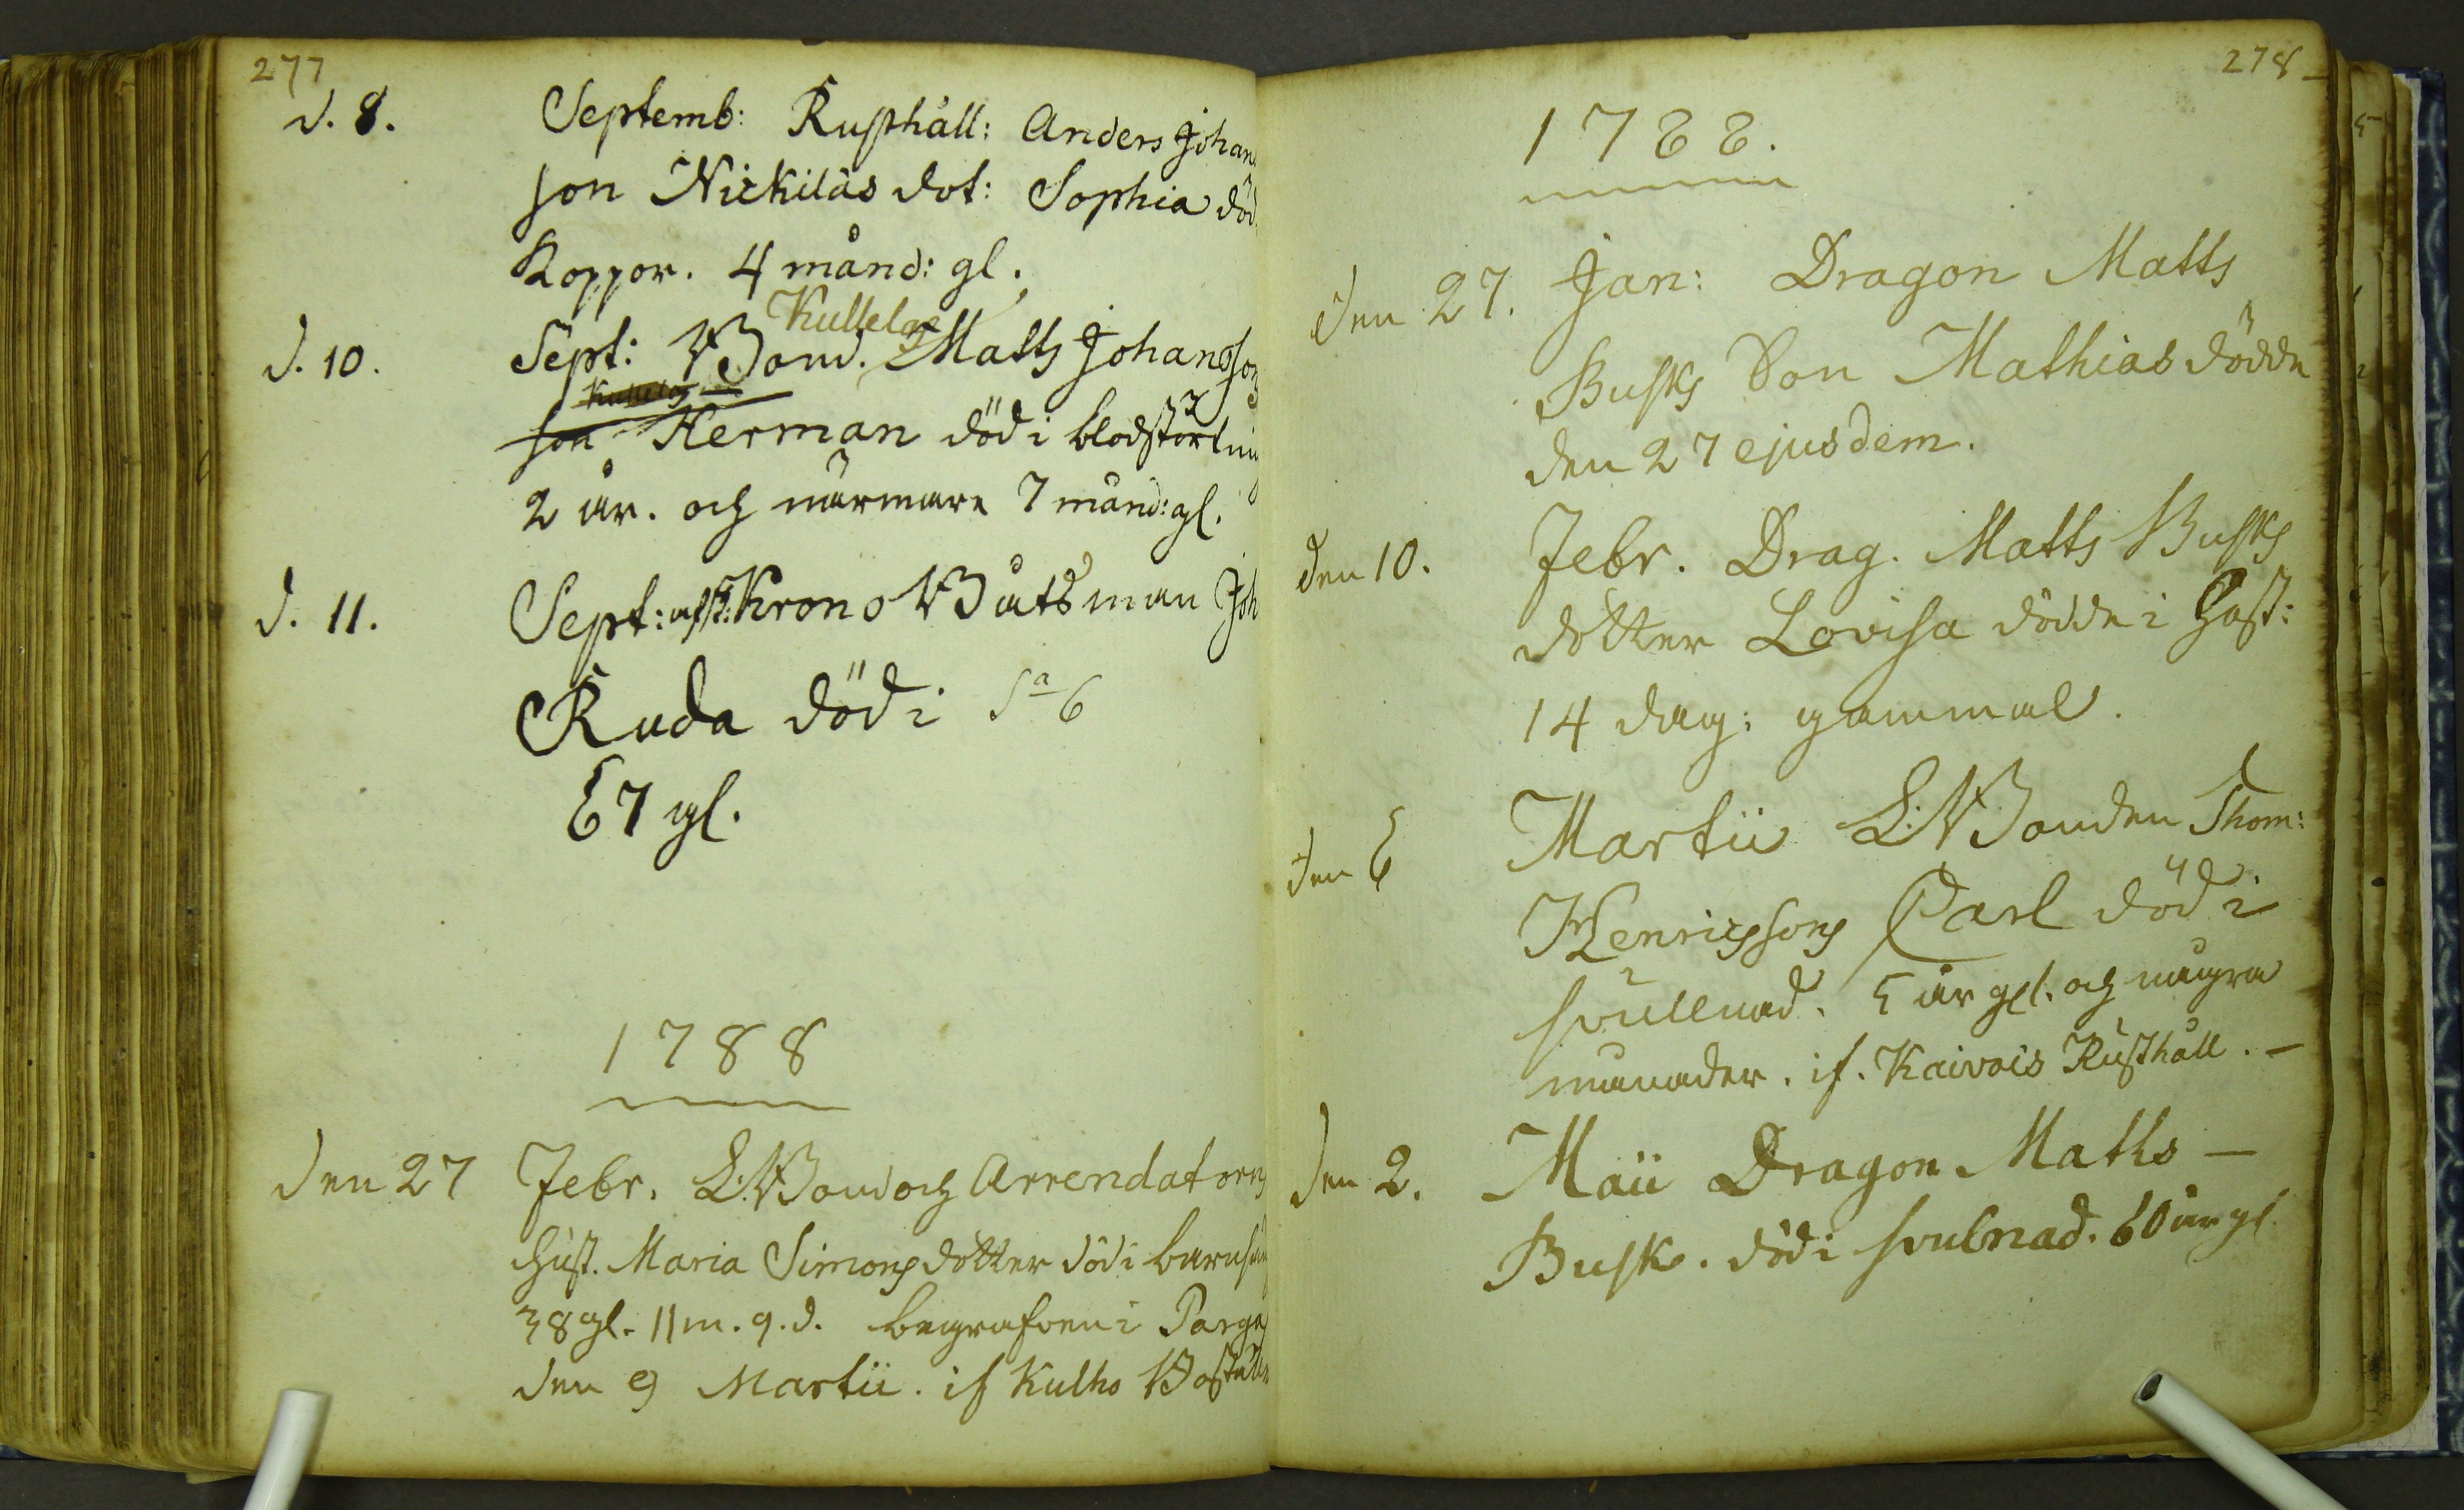 277
d. 8. Septemb: Rusthåll: Anders Johan
son Nickiläs dot: Sophia död
Koppor. 4 månd: gl.
Kullela
d. 10. Sept: Bond. Matts Johansson
son Herman död i blodstörtning
2 år. och närmare 7 månd: gl.
d. 11. Sept: afsk: Krono Båtsman Joh
Ruda död i
67 gl.
1788
den 27 Febr. L. Bond och Arrendatorns
Hust. Maria Simonsdotter död i barnsäng
38 gl. 11 m. 9. d. begrafven i Pargas
den 9 Martii. if Kulho Boställe
278
1788.
den 27. Jan: Dragon Matts
Busks Son Mathias dödde
den 27 ejusdem.
den 10. Febr. Drag. Matts Busks
dotter Lovisa dödde i Hast:
14 dag: gammal.
den 6 Martii L: Bonden Thom:
Henricssons Carl död i
svullnad. 5 år gl. och några
månader. if. Kaivois Rusthåll. -
den 2. Maii Dragon Matts -
Busk. död i svulnad. 60 år gl.